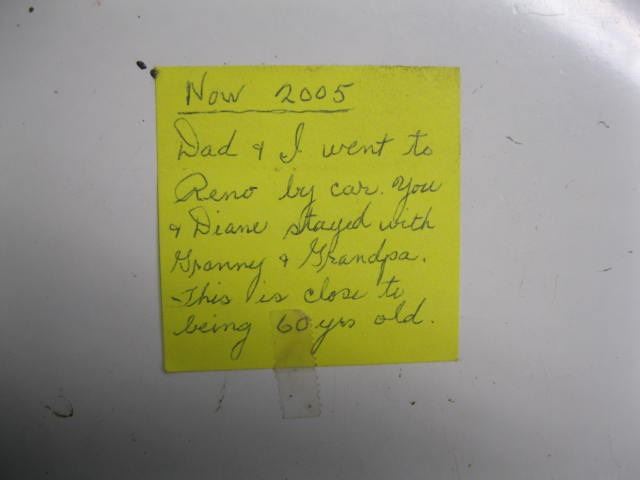 Now 2005
Dad & I went to
Reno by car. You
& Diane stayed with
Granny & Grandpa.
- This is close to
being 60 yrs old.